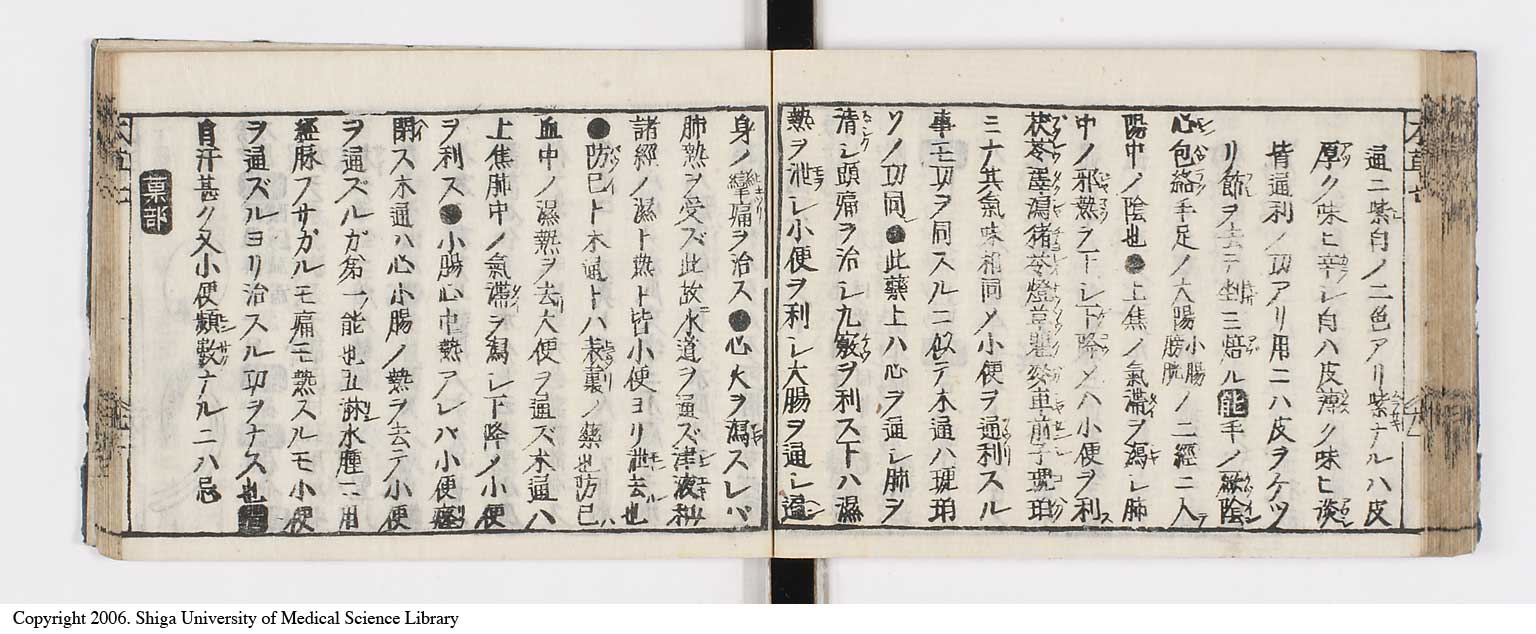 通ニ紫白ノ二色アリ紫ナルハ皮
厚ク味ヒ辛シ白ハ皮薄ク味ヒ淡
皆通利ノ功アリ用ニハ皮ヲケヅ
リ節ヲ去テ剉ミ焙ル能手ノ厥陰
心包絡手足ノ太陽小腸膀胱ノ二經ニ入
陽中ノ陰也●上焦ノ氣滯ヲ瀉シ肺
中ノ邪熱ヲ下シ下降メハ小便ヲ利
茯苓澤瀉猪苓燈草瞿麥車前子琥珀
ミナ其氣味相同メ小便ヲ通利スル
事モ功ヲ同スルニ似テ木通ハ琥珀
ソノ功同●此藥上ハ心ヲ通シ肺ヲ
清シ頭痛ヲ治シ九竅ヲ利ス下ハ濕
熱ヲ泄シ小便ヲ利シ大腸ヲ通シ遍
身ノ攣痛ヲ治ス●心火ヲ瀉スレバ
肺熱ヲ受ズ此故水道ヲ通ズ津液和
諸經ノ濕ト熱ト皆小便ヨリ泄去也
●防已ト木通トハ表裏ノ藥也防已ハ
血中ノ濕熱ヲ去大便ヲ通ズ木通ハ
上焦肺中ノ氣滯ヲ瀉シ下降ノ小便
ヲ利ス●小腸心中熱アレバ小便
閉ス木通ハ心小腸ノ熱ヲ去テ小便
ヲ通ズルガ第一ノ能也五淋水腫ニ用
經脉フサガルモ痛モ熱スルモ小便
ヲ通ズルヨリ治スル功ヲナス也
自汗甚ク又小便頻數ナルニハ忌
菓部
Copyright 2006. Shiga University of Medical Science Library